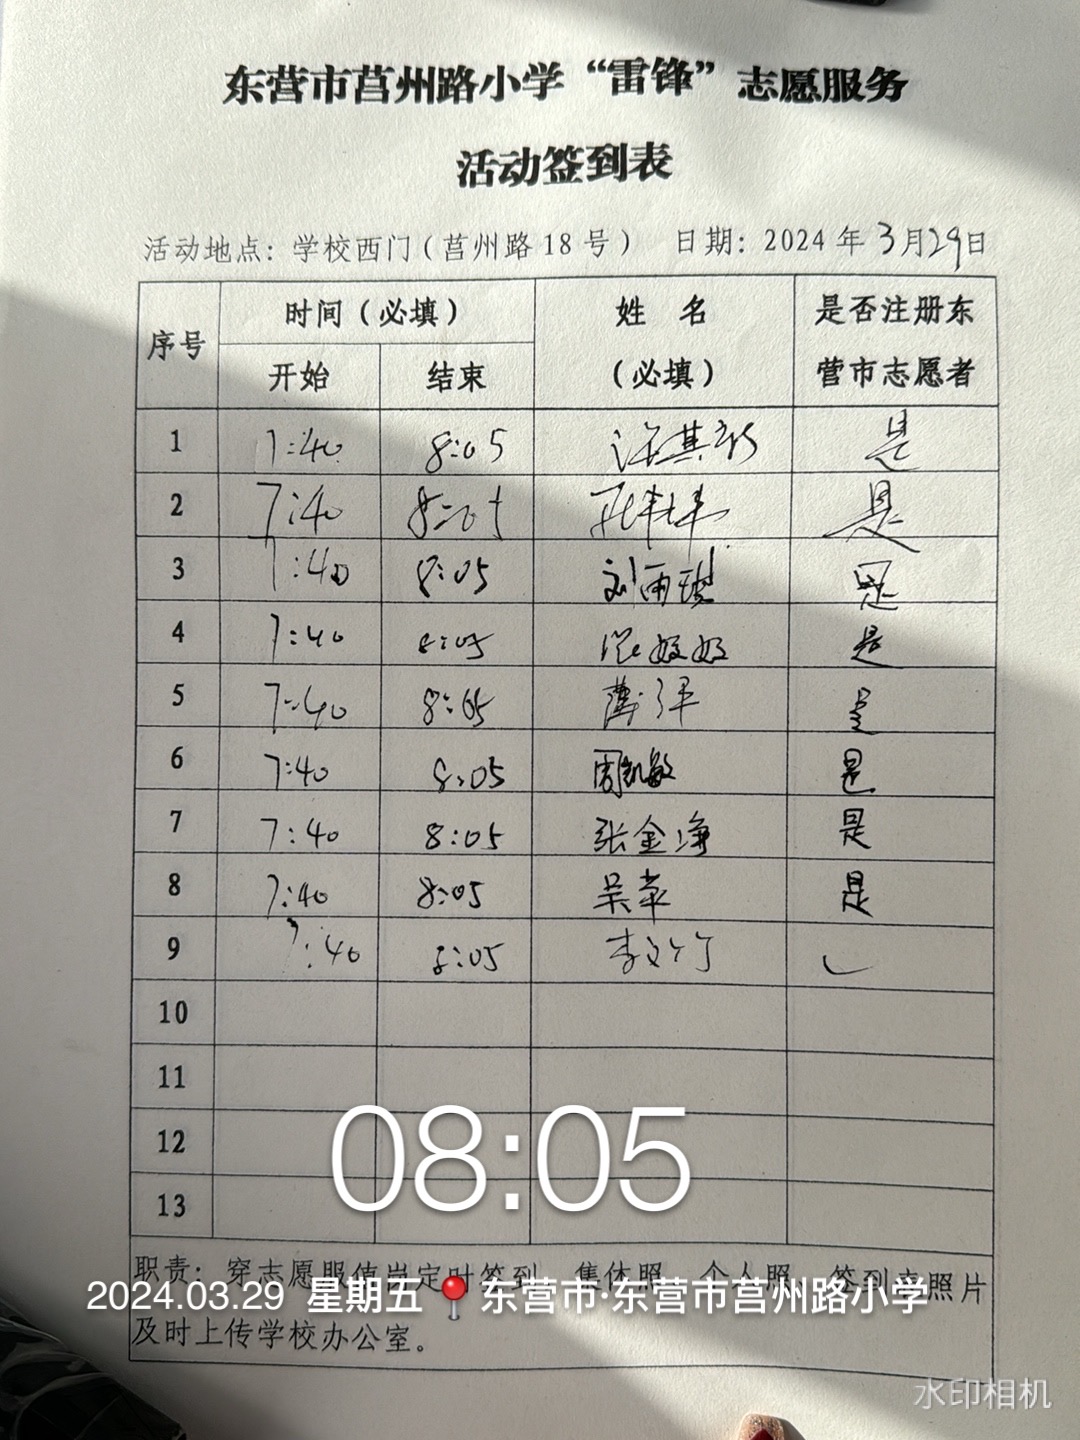 东营市莒州路小学“雷锋”志愿服务
活动签到表
活动地点：学校西门（莒州路18号） 日期：2024年3月29日
序号 时间（必填） 姓 名 是否注册东
开始 结束 （必填） 营市志愿者
1 7:40 8:05 是
2 7:40 8:05 是
3 7:40 8:05 刘雨 是
4 7:40 8:05 是
5 7:40 8:05 是
6 7:40 8:05 周凯敏 是
7 7:40 8:05 张金海 是
8 7:40 8:05 吴苹 是
9 7:40 8:05 李文竹
10
11
12
13
08:05
职责：穿志愿服值岗定时签到，集体照、个人照、签到表照片
2024.03.29 星期五 东营市·东营市莒州路小学
及时上传学校办公室。
水印相机